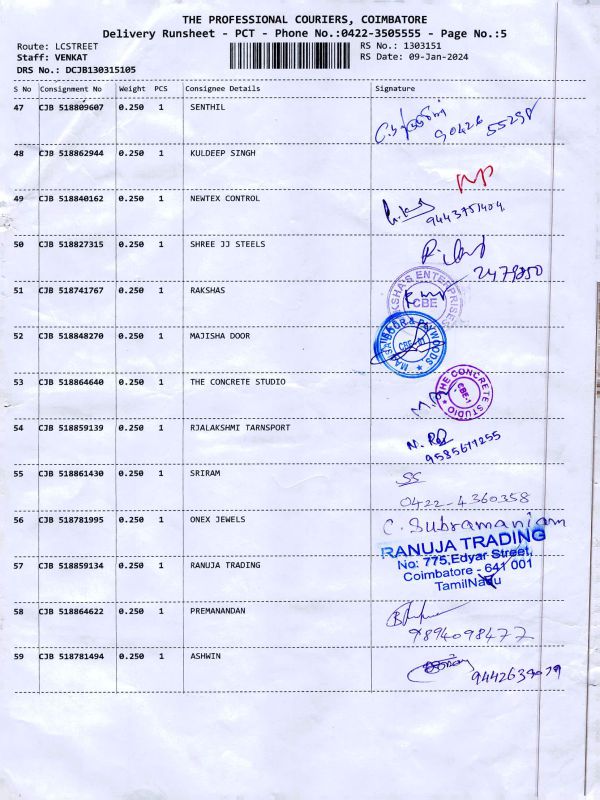 THE PROFESSIONAL COURIERS, COIMBATORE
Delivery Runsheet - PCT - Phone No.:0422-3505555 - Page No.:5
Route: LCSTREET RS No.: 1303151
Staff: VENKAT RS Date: 09-Jan-2024
DRS No.: DCJB130315105
S No Consignment No Weight PCS Consignee Details Signature
47 CJB 518809607 0.250 1 SENTHIL
90426 55298
48 CJB 518862944 0.250 1 KULDEEP SINGH
49 CJB 518840162 0.250 1 NEWTEX CONTROL
50 CJB 518827315 0.250 1 SHREE JJ STEELS
2479850
51 CJB 518741767 0.250 1 RAKSHAS
RAKSHA'S ENTERPRISES
CBE
52 CJB 518848270 0.250 1 MAJISHA DOOR
DOOR & PLYWOODS
CBE
53 CJB 518864640 0.250 1 THE CONCRETE STUDIO
THE CONCRETE STUDIO
CBE-1
54 CJB 518859139 0.250 1 RJALAKSHMI TARNSPORT
55 CJB 518861430 0.250 1 SRIRAM
SS
0422-4360358
56 CJB 518781995 0.250 1 ONEX JEWELS
C. Subramaniam
57 CJB 518859134 0.250 1 RANUJA TRADING
RANUJA TRADING
No: 775,Edyar Street,
Coimbatore - 641 001
TamilNadu
58 CJB 518864622 0.250 1 PREMANANDAN
9894098477
59 CJB 518781494 0.250 1 ASHWIN
9442639079